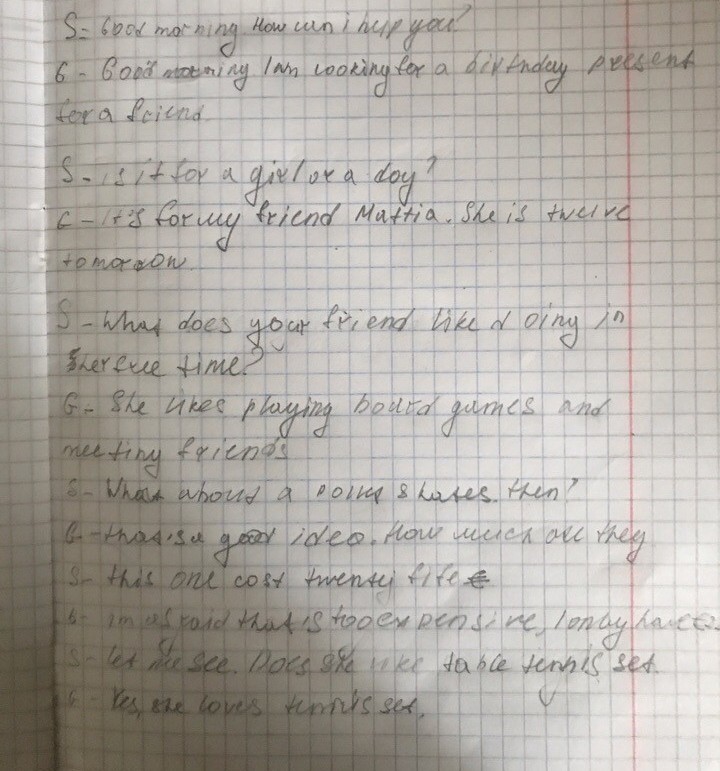 S- Good morning How can i help you?
G- Good morning I am looking for a birthday present
for a friend.
S- is it for a girl or a doy?
G- It's for my friend Mattia. She is twelve
tomorrow.
S- What does your friend like doing in
her free time?
G- She likes playing board games and
meeting friends
S- What about a skates then?
G- that's a good idea. How much are they
S- this one cost twenty fife €
G- im afraid that is too expensive, I only have
S- let me see. Does she like table tennis set.
G- Yes, she loves tennis set.